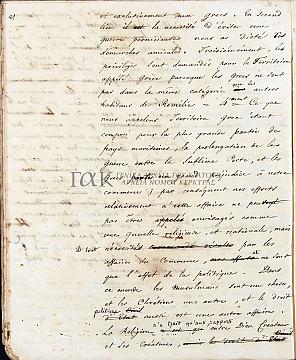 21
et exclusivement aux Grecs. En second
lieu il est la nécessité d'éviter une
guerre pernicieuse nous a dicté les
démarches amicales. Troisièmement, les
privilèges sont demandés pour le Territoire
appelé Grèce parceque les Grecs ne sont
pas dans la même catégorie que les autres
habitans de Romelie. 4ment Ce que
nous appelons Territoire Grec étant
composé pour la plus grande partie de
pays maritimes, la prolongation de la
guerre entre la Sublime Porte, et les
à notre
commerce; par conséquent nos efforts
relativement à cette affaire ne
pas être envisagés comme
une querelle religieuse et nationale, mais
par les
affaires du Commerce, ne
que l'effet de la politique. Dans
ce monde les Musulmans sont une chose,
et les Chrétiens une autre, et le droit
politique est une autre affaire.
La Religion n'a trait qu'aux rapports entre Dieu Créateur
et ses Créatures,
ΓΑΚ
ΓΕΝΙΚΑ ΑΡΧΕΙΑ ΤΟΥ ΚΡΑΤΟΥΣ
ΑΡΧΕΙΑ ΝΟΜΟΥ ΚΕΡΚΥΡΑΣ